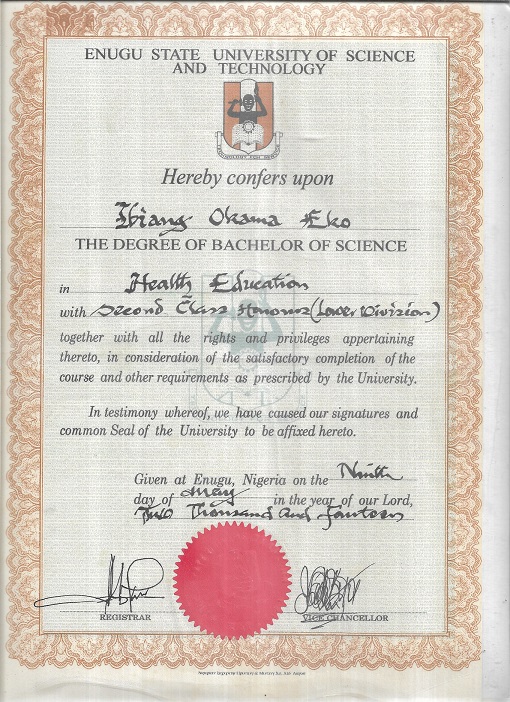 ENUGU STATE UNIVERSITY OF SCIENCE
AND TECHNOLOGY
Hereby confers upon
Ibiang Okama Eko
THE DEGREE OF BACHELOR OF SCIENCE
in Health Education
with Second Class Honours (Lower Division)
together with all the rights and privileges appertaining
thereto, in consideration of the satisfactory completion of the
course and other requirements as prescribed by the University.
In testimony whereof, we have caused our signatures and
common Seal of the University to be affixed hereto.
Given at Enugu, Nigeria on the Ninth
day of May in the year of our Lord,
Two Thousand and Fourteen
REGISTRAR
VICE CHANCELLOR